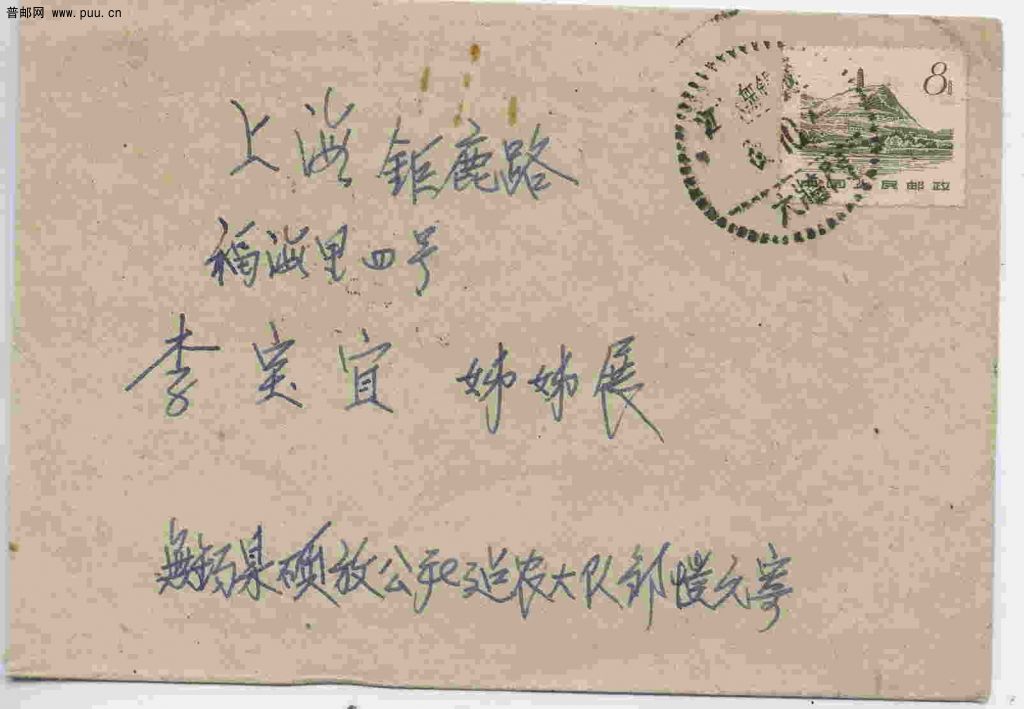 普邮网 www.puu.cn
8分
中国人民邮政
上海 钜鹿路
福海里四号
李实宜 姊姊展
無锡县硕放公社迨农大队邹惶元寄